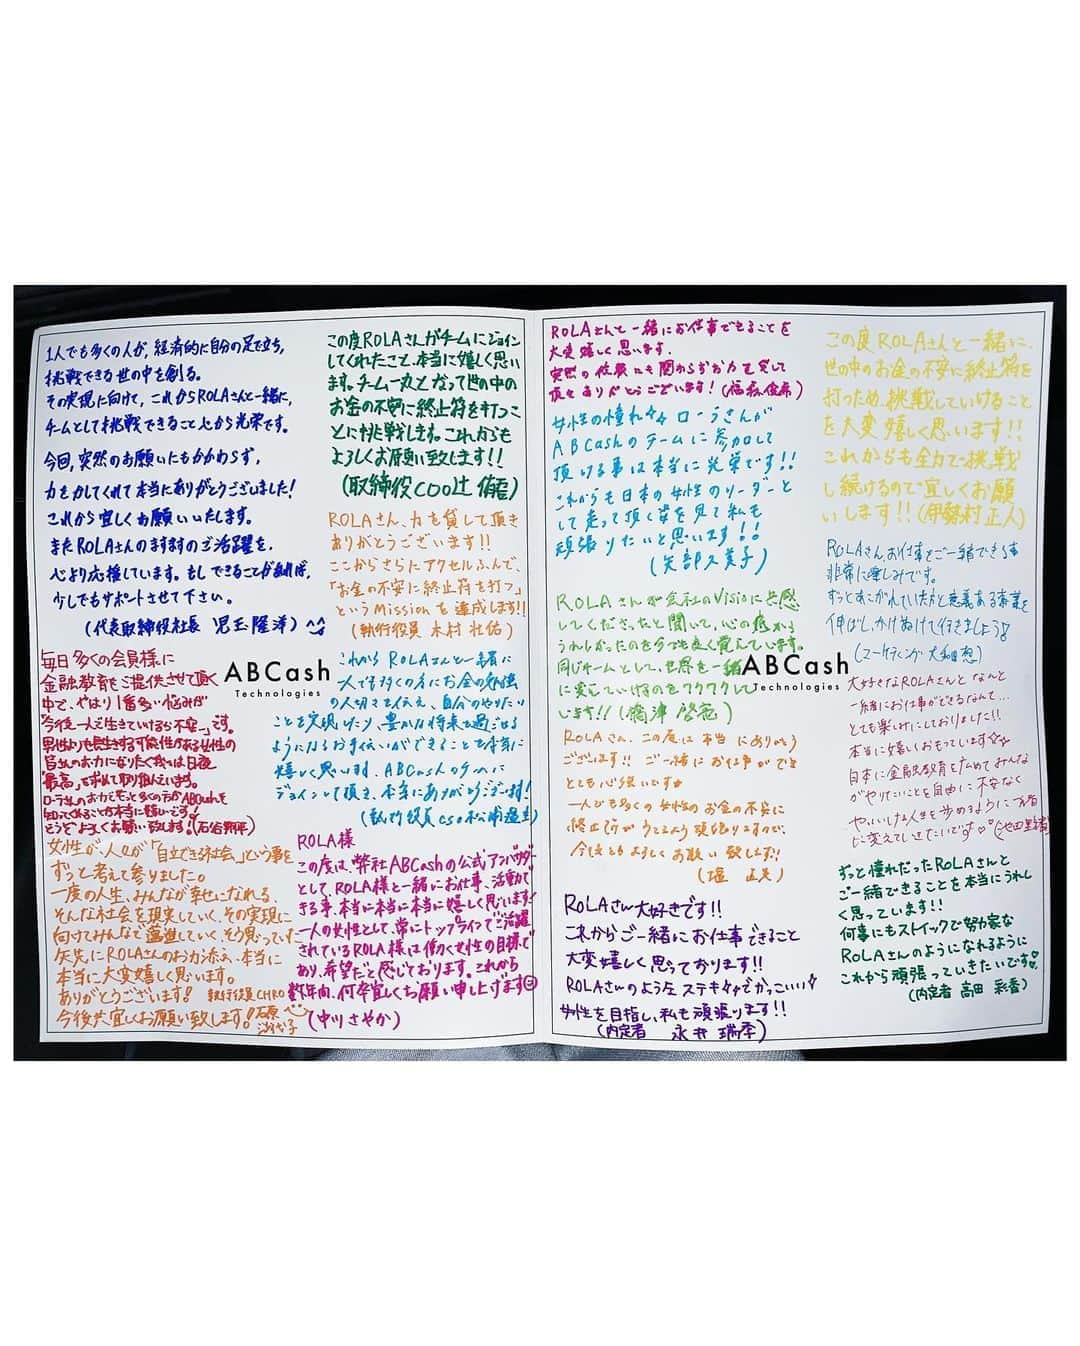 1人でも多くの人が、経済的に自分の足で立ち、
挑戦できる世の中を創る。
その実現に向けて、これからROLAさんと一緒に、
チームとして挑戦できること心から光栄です。
今回、突然のお願いにもかかわらず、
力を力してくれて本当にありがとうございました!
これから宜しくお願いいたします。
またROLAさんのますますのご活躍を、
心より応援しています。もしできることがあれば、
少しでもサポートさせて下さい。
(代表取締役社長 児玉隆洋)^^
この度ROLAさんがチームにジョイン
してくれたこと、本当に嬉しく思い
ます。チーム一丸となって世の中の
お金の不安に終止符を打つこ
とに挑戦します。これからも
よろしくお願い致します!!
(取締役COO辻 侑吾)
ROLAさん、力を貸して頂き
ありがとうございます!!
ここからさらにアクセルふんで、
「お金の不安に終止符を打つ」
というMissionを達成します!!
(執行役員 木村 壮佑)
毎日多くの会員様に
金融教育をご提供させて頂く
中で、やはり1番多い悩みが
"今後一人で生きていけるか不安…"です。
男性よりも長生きする可能性がある女性の
皆さんのお力になりたく我々は日夜
「最高」を求めて取り組んでいます。
ローラさんのお力でもっと多くの方がABCashを
知ってくれることが本当に嬉しいです!
どうぞよろしくお願い致します!(石谷 昇平)
ABCash
Technologies
これからROLAさんと一緒に
一人でも多くの方にお金の勉強
の大切さを伝え、自分のやりたい
ことを実現したり、豊かな将来を過ごせる
ようになるお手伝いができることを本当に
嬉しく思います、ABCashのチームに
ジョインして頂き、本当にありがとうございます!
(執行役員CSO松浦 遥生)
女性が、人々が「自立できる社会」という事を
ずっと考えて参りました。
一度の人生、みんなが幸せになれる、
そんな社会を現実していく、その実現に
向けてみんなで邁進していく、そう思っていた
矢先にROLAさんのお力添え、本当に
本当に大変嬉しく思います。
ありがとうございます! 執行役員CHRO
今後共宜しくお願い致します!石原
ROLA様
この度は、弊社ABCashの公式アンバサダー
として、ROLA様と一緒にお仕事、活動で
きる事、本当に本当に本当に嬉しく思います!
一人の女性として、常にトップラインでご活躍
されているROLA様は働く女性の目標で
あり、希望だと感じております。これから
数年間、何卒宜しくお願い申し上げます
(中川 さやか)
ROLAさんと一緒にお仕事できることを
大変嬉しく思います。
突然の依頼にも関わらずお力を貸して
頂きありがとうございます!(福森俊希)
女性の憧れ々々ローラさんが
ABCashのチームに参加して
頂ける事は本当に光栄です!!
これからも日本の女性のリーダーと
して走って頂く姿を見て私も
頑張りたいと思います!!
(矢部久美子)
ROLAさんが会社のVisionに共感
してくださったと聞いて、心の底から
うれしかったのを今でも良く覚えています。
同じチームとして、世界を一緒
に変えていけるのをワクワクして
います!!
ABCash
Technologies
ROLAさん、この度は本当にありがとう
ございます!!ご一緒にお仕事ができ
とても心強いです☆
一人でも多くの女性のお金の不安に
終止符がうてるよう頑張りますので、
今後ともよろしくお願い致します!!
ROLAさん大好きです!!
これからご一緒にお仕事できること
大変嬉しく思っております!!
ROLAさんのようなステキ々々でかっこいい
女性を目指し、私も頑張ります!!
(内定者 永井 瑞季)
この度ROLAさんと一緒に、
世の中のお金の不安に終止符を
打つため、挑戦していけること
を大変嬉しく思います!!
これからも全力で挑戦
し続けるので宜しくお願
いします!!(伊勢村 正人)
ROLAさん、お仕事をご一緒できる事
非常に楽しみです。
ずっとあこがれていた方と意義ある事業を
伸ばし、かけぬけて行きましょう!
(マーケティング 大和田 想)
大好きなROLAさんと なんと
一緒にお仕事ができるなんて…
とても楽しみにしておりました!!
本当に嬉しくおもっています☆
日本に金融教育を広めてみんな
がやりたいことを自由に不安なく
ずっと憧れだったROLAさんと
ご一緒できることを本当にうれし
く思っています!!
何事にもストイックで努力家な
ROLAさんのようになれるように
これから頑張っていきたいです
(内定者 高田 彩香)